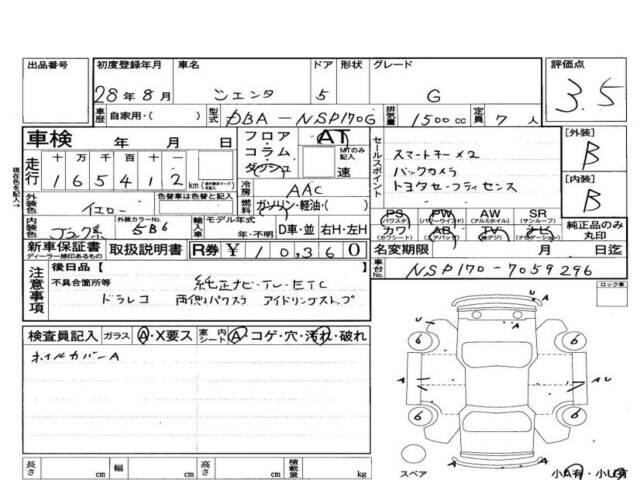 出品番号 初度登録年月 車名 ドア 形状 グレード 評価点
28年8月 シエンタ 5 G 3.5
車歴 自家用・( ) 型式 DBA-NSP170G 排気量 1500cc 定員 7人
車検 年 月 日 フロア・コラム・ダッシュ AT MTのみ記入 速
走行 十 万 千 百 十 一
165412 km
セールスポイント
スマートキー×2
バックカメラ
トヨタセーフティセンス
[外装] B
[内装] B
現在色を記入→
外装色 イエロー 色替車は色替と記入
冷房 AAC
燃料 ガソリン・軽油・( )
内装色 外装カラーNo. 5B6 輸入車 モデル年式 年・不明 D車・並 右H・左H
PS (パワステ) PW (パワーウインド) AW (アルミホイル) SR (サンルーフ)
カワ (カワシート) AB (エアバック) TV (地デジ) ナビ (ナビゲーション)
純正品のみ丸印
新車保証書 ディーラー捺印あるもの 取扱説明書 R券 ¥10,360 名変期限 月 日迄
注意事項 後日品[ ]
不具合箇所等 純正ナビ-TV-ETC
ドラレコ 両側パワスラ アイドリングストップ
車台No. NSP170-7059296
ロック車
検査員記入 ガラス A・X要ス 室内シート A・コゲ・穴・汚れ・破れ
ホイルカバーA
U A
A
6 6
A A U
6 6
A
スペア 小A有・小U有
長さ cm 幅 cm 高さ cm 積載量 kg